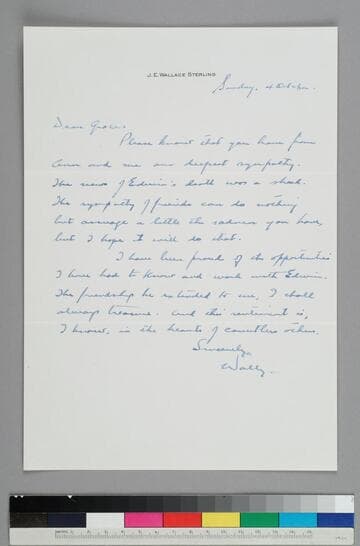 J. E. WALLACE STERLING
Sunday, 4 October
Dear Grace,
Please know that you have from
Ann and me our deepest sympathy.
The news of Edwin's death was a shock.
The sympathy of friends can do nothing
but assuage a little the sadness you have,
but I hope it will do that.
I have been proud of the opportunities
I have had to know and work with Edwin.
The friendship he extended to me, I shall
always treasure. And this sentiment is,
I know, in the hearts of countless others.
Sincerely,
Wally